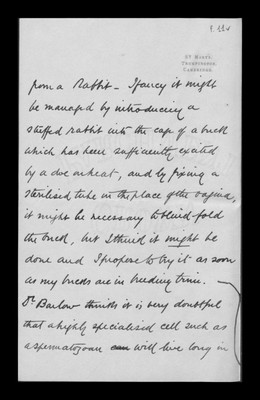 from a Rabbit – I fancy it might
be managed by introducing a
stuffed rabbit into the cage of a buck
which has been sufficiently excited
by a doe on heat, and by fixing a
sterilised tube in the place of the vagina,
it might be necessary to blind-fold
the buck, but I think it might be
done and I propose to try it as soon
as my bucks are in breeding trim. —
Dr Barlow thinks it is very doubtful
that a highly specialised cell such as
a spermatozoon can will live long in